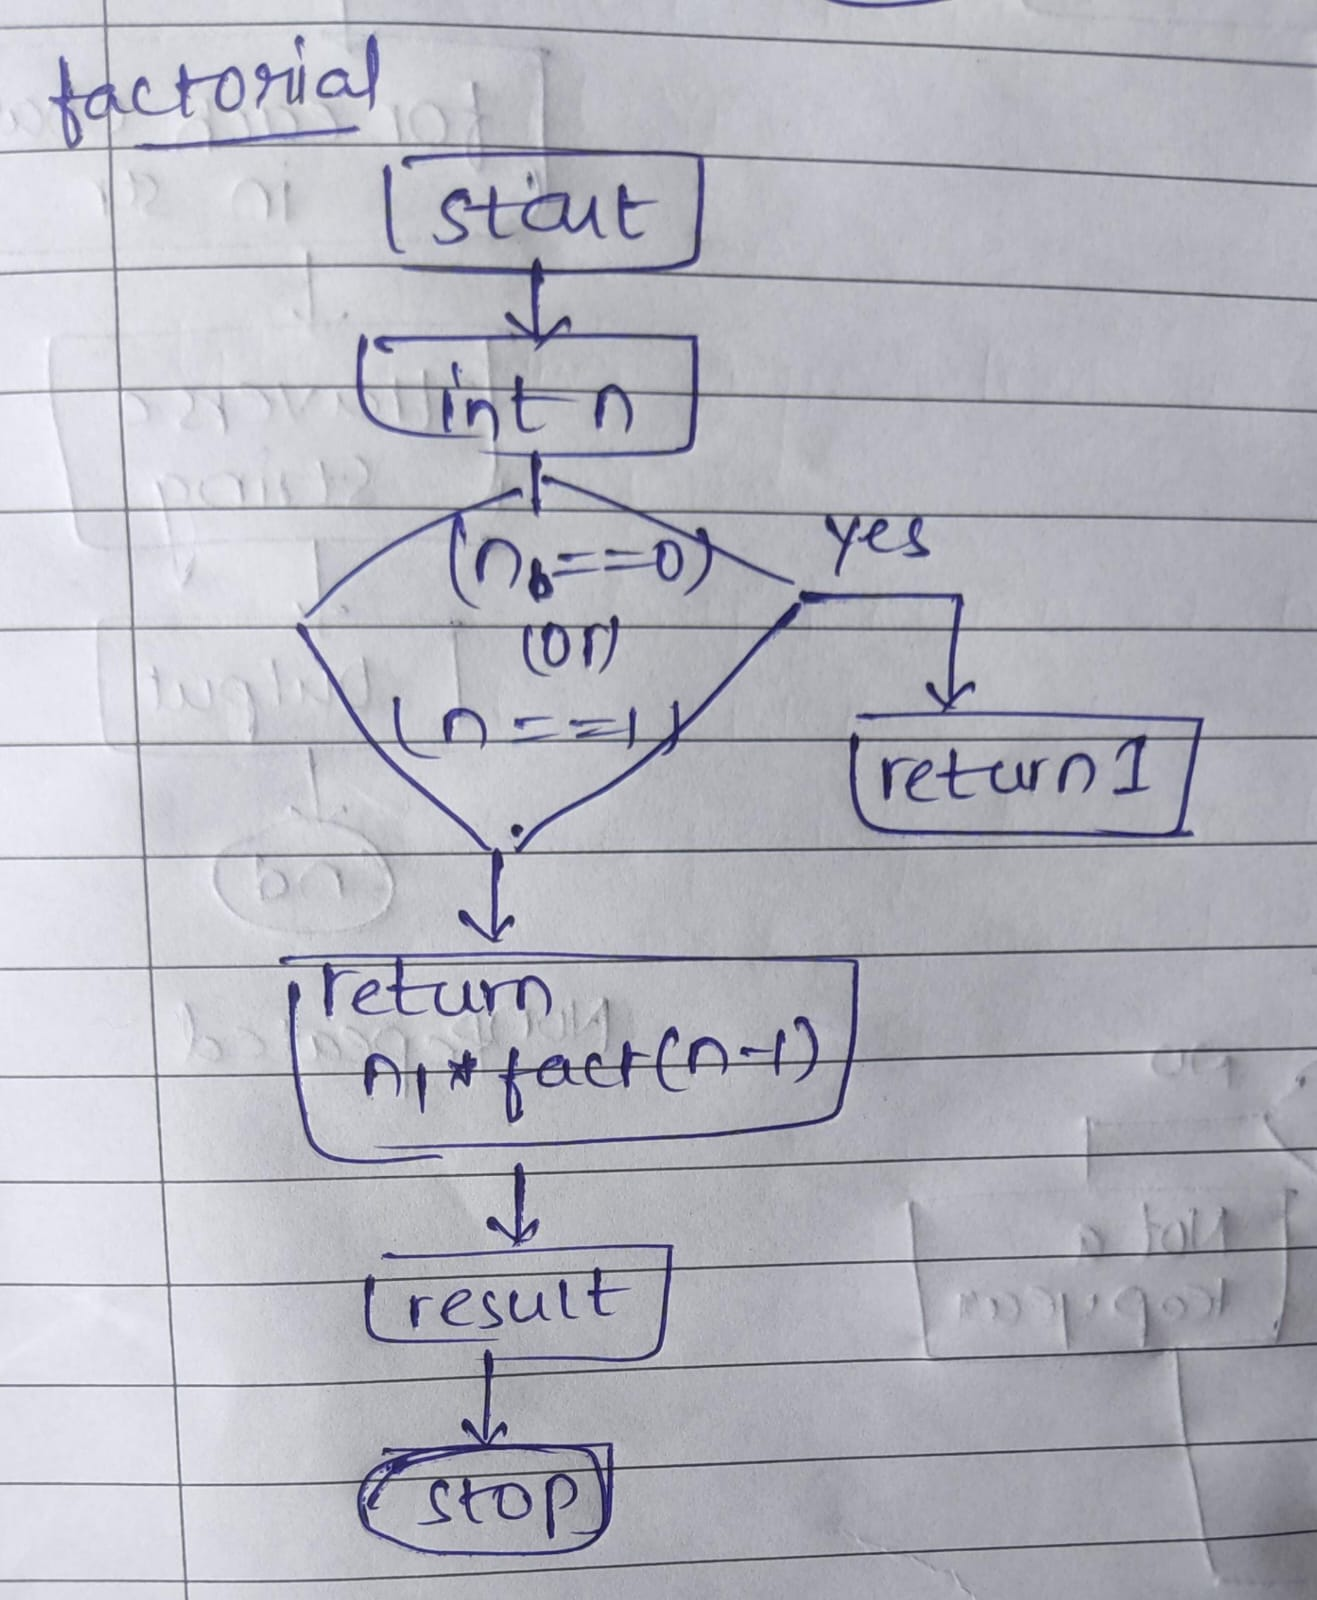 factorial
start
int n
(n==0)
yes
(or)
(n==1)
return 1
return
n * fact(n-1)
result
stop